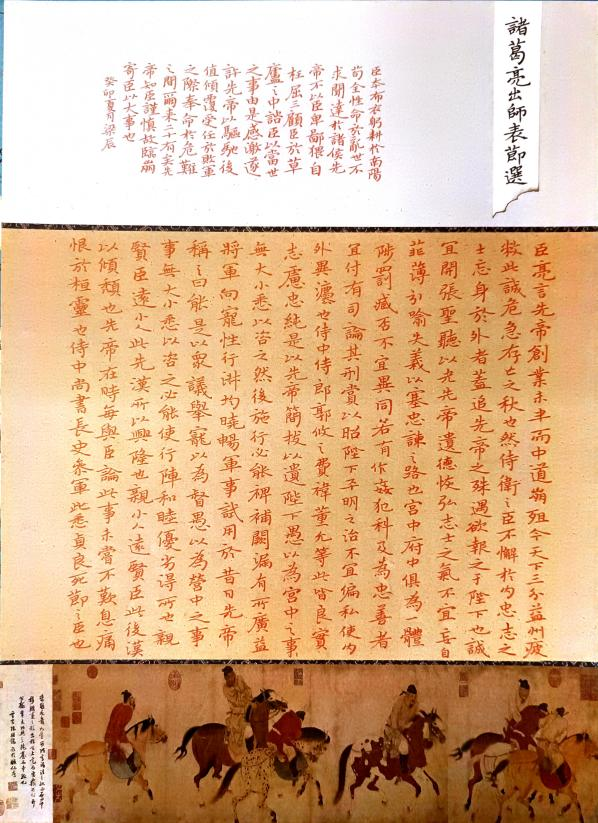 諸葛亮出師表節選
臣本布衣躬耕於南陽
苟全性命於亂世不
求聞達於諸侯先
帝不以臣卑鄙猥自
枉屈三顧臣於草
廬之中諮臣以當世
之事由是感激遂
許先帝以驅馳後
值傾覆受任於敗軍
之際奉命於危難
之間爾來二十有一矣先
帝知臣謹慎故臨崩
寄臣以大事也
癸卯夏月梁辰
臣亮言先帝創業未半而中道崩殂今天下三分益州疲
敝此誠危急存亡之秋也然侍衛之臣不懈於內忠志之
士忘身於外者蓋追先帝之殊遇欲報之于陛下也誠
宜開張聖聽以光先帝遺德恢弘志士之氣不宜妄自
菲薄引喻失義以塞忠諫之路也宮中府中俱為一體
陟罰臧否不宜異同若有作姦犯科及為忠善者
宜付有司論其刑賞以昭陛下平明之治不宜偏私使內
外異灋也侍中侍郎郭攸之費禕董允等此皆良實
志慮忠純是以先帝簡拔以遺陛下愚以為宮中之事
無大小悉以咨之然後施行必能裨補闕漏有所廣益
將軍向寵性行淑均曉暢軍事試用於昔日先帝
稱之曰能是以眾議舉寵以為督愚以為營中之事
事無大小悉以咨之必能使行陣和睦優劣得所也親
賢臣遠小人此先漢所以興隆也親小人遠賢臣此後漢
以傾頹也先帝在時每與臣論此事未嘗不歎息痛
恨於桓靈也侍中尚書長史參軍此悉貞良死節之臣也